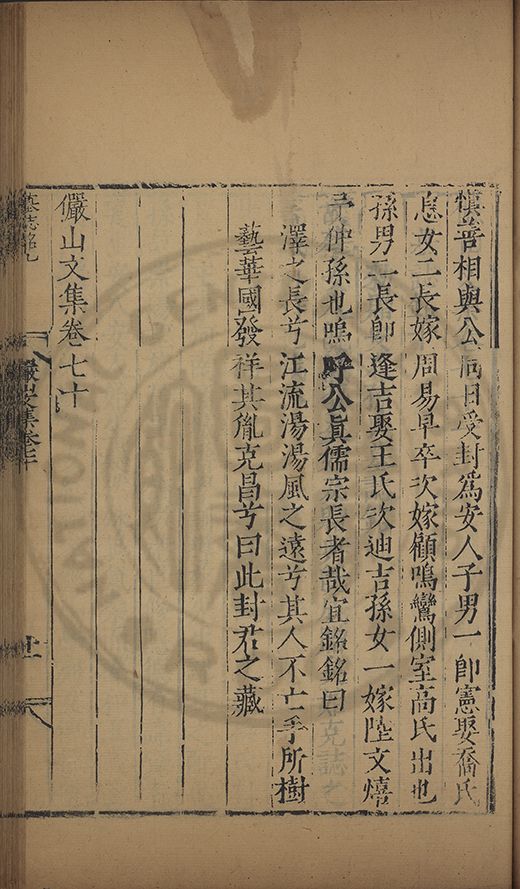 慎善相與公同日受封爲安人子男一卽憲娶喬氏
息女二長嫁周易早卒次嫁顧鳴鸞側室高氏出也
孫男二長卽逢吉娶王氏次迪吉孫女一嫁陸文熺
予仲孫也嗚呼公眞儒宗長者哉宜銘銘曰
澤之長兮江流湯湯風之遠兮其人不亡乎所樹
藝華國發祥其胤克昌兮曰此封君之藏
儼山文集卷七十
墓誌銘九
儼山文集卷七十